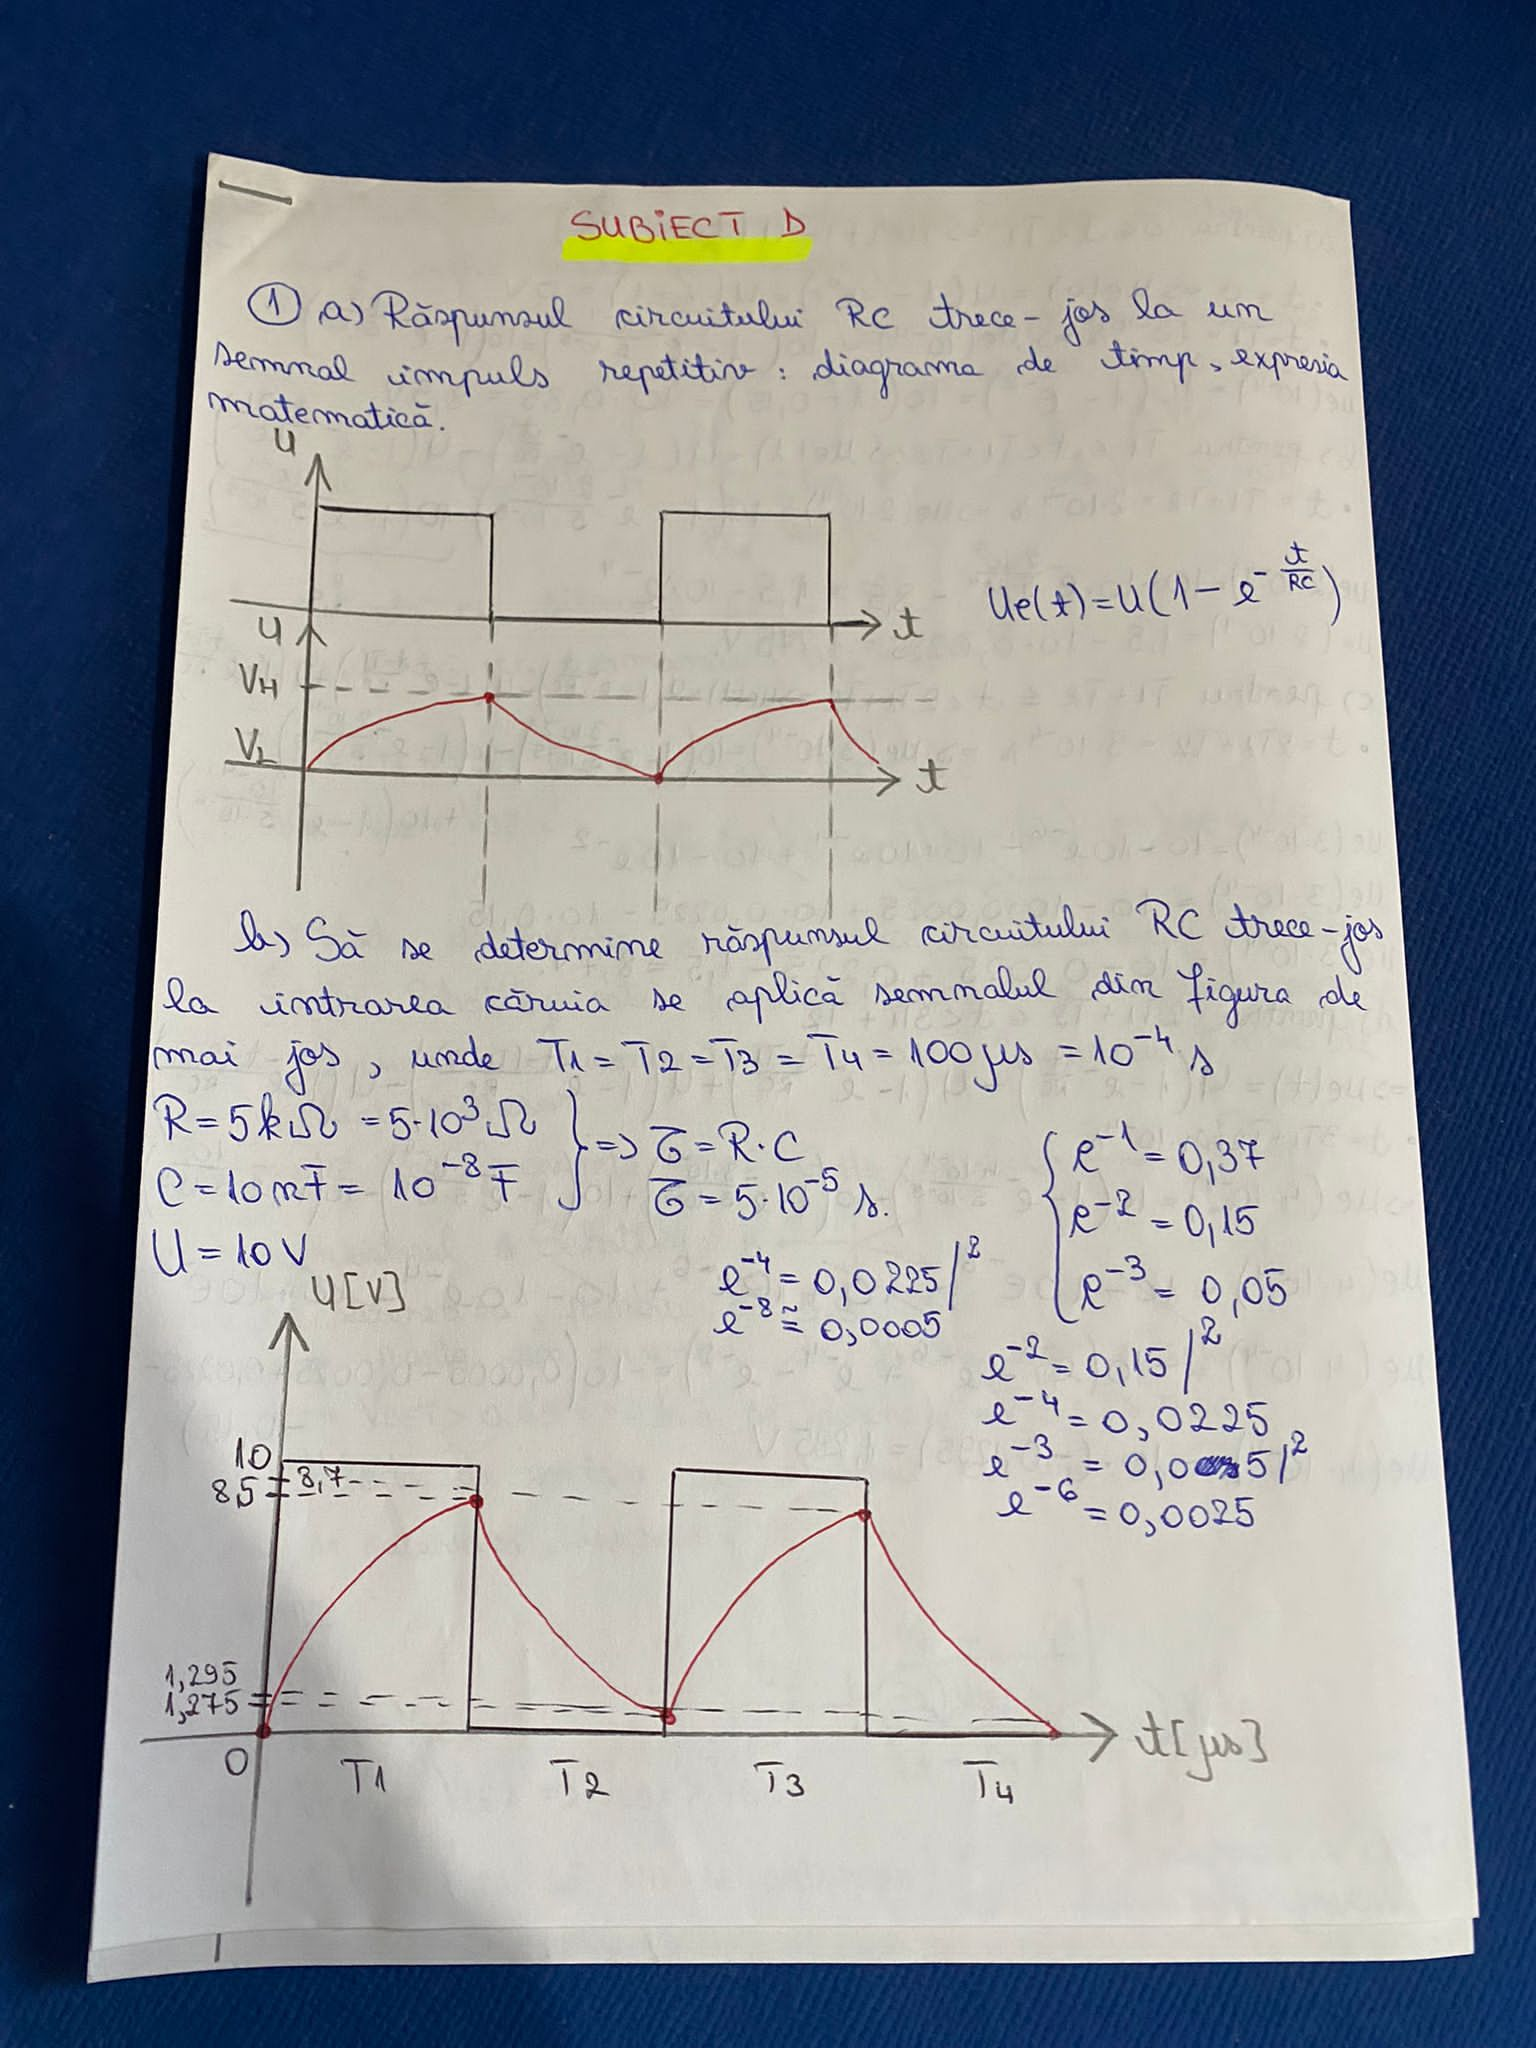 SUBIECT D
① a) Răspunsul circuitului RC trece-jos la un
semnal impuls repetitiv: diagrama de timp, expresia
matematică.
U
t
Ue(t)=U(1-e^-t/RC)
U
VH
VL
t
b) Să se determine răspunsul circuitului RC trece-jos
la intrarea căruia se aplică semnalul din figura de
mai jos, unde T1=T2=T3=T4=100µs=10^-4 s
R=5kΩ=5·10^3 Ω
C=10nF=10^-8 F
} => τ=R·C
τ=5·10^-5 s.
U=10V
{ e^-1=0,37
e^-2=0,15
e^-3=0,05
e^-4=0,0225/^2
e^-8≅0,0005
e^-2=0,15/^2
e^-4=0,0225
e^-3=0,05/^2
e^-6=0,0025
U[V]
10
8,7
8,5
1,295
1,275
0
T1 T2 T3 T4
t[µs]